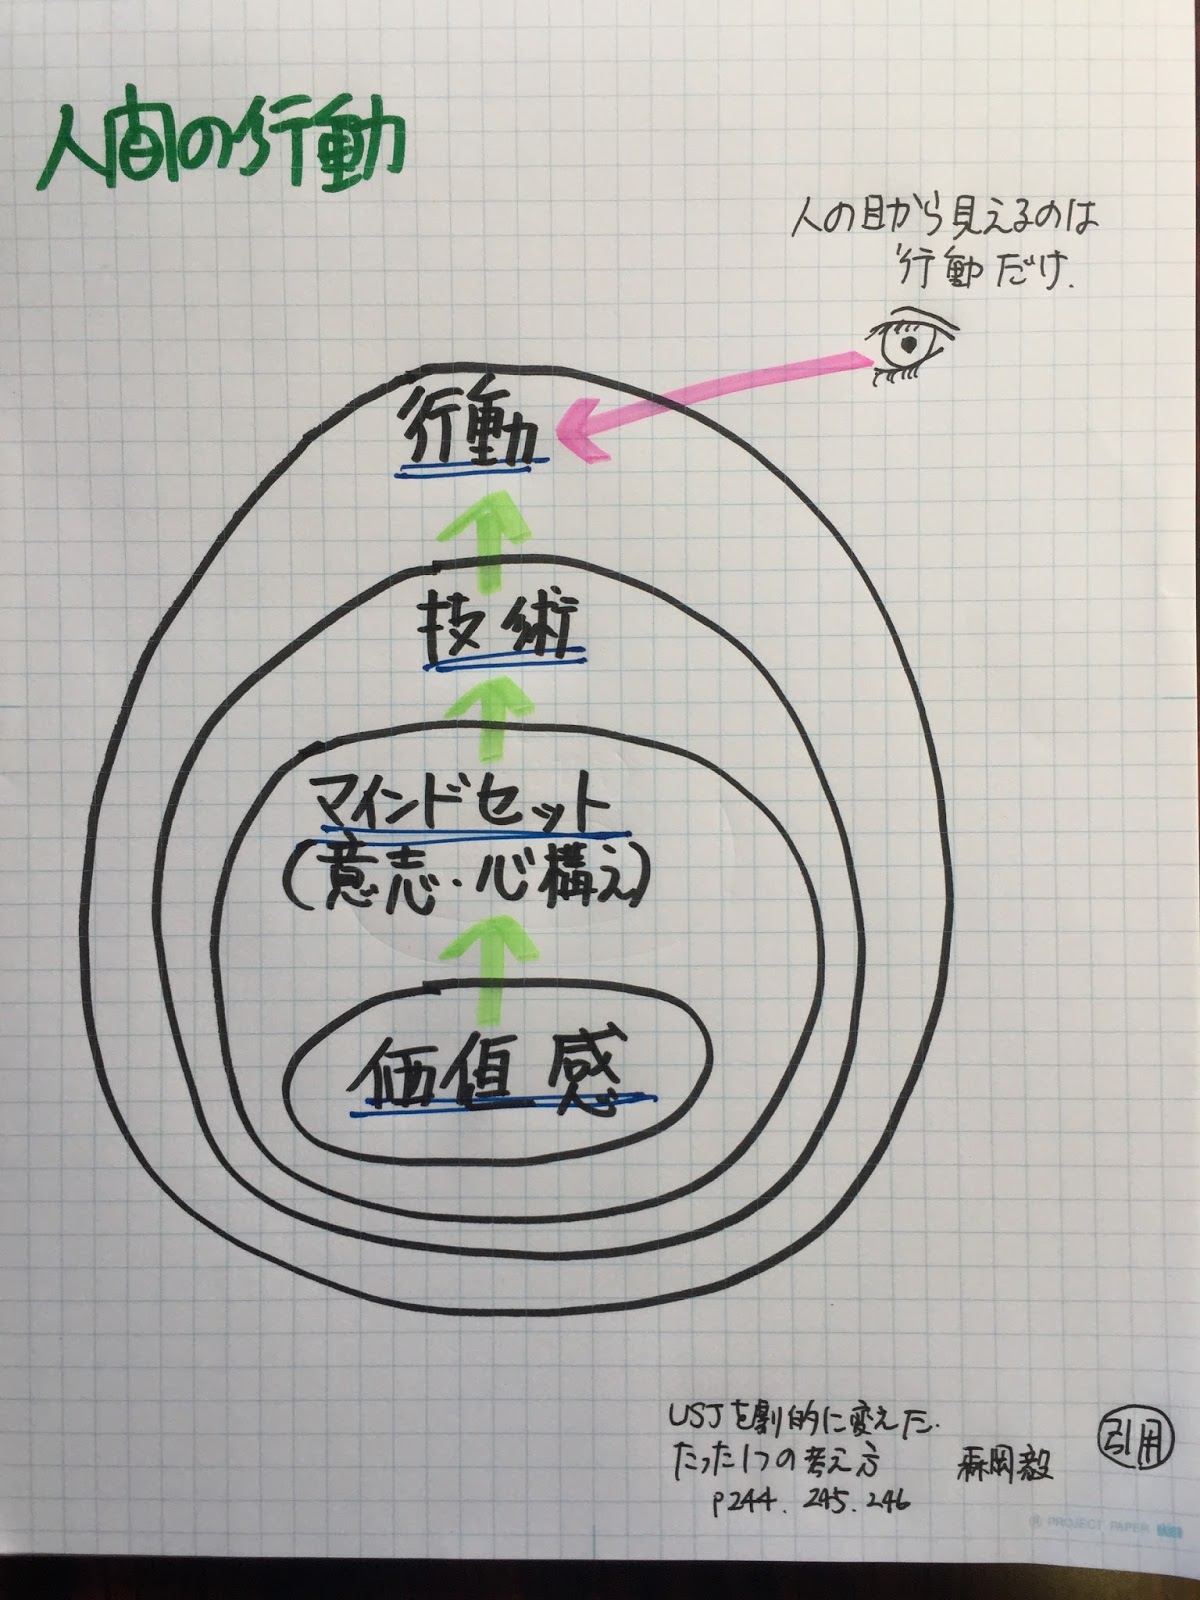 人間の行動
人の目から見えるのは
行動だけ.
行動
技術
マインドセット
(意志・心構え)
価値感
USJを劇的に変えた.
たった1つの考え方 森岡毅
p244. 245. 246
引用
PROJECT PAPER